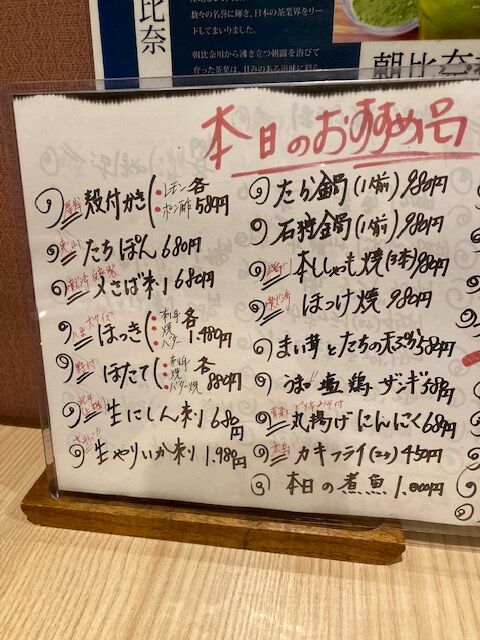 比奈
数々の名誉に輝き、日本の茶業界をリー
ドしてまいりました。
朝比奈川から沸き立つ朝露を浴びて
朝比奈
本日のおすすめ品
殻付かき(レモン ポン酢 各589円
たちぽん 680円
〆さば刺 680円
大サイズ
ほっき(刺身 焼 バター 各1.480円
ほたて(刺身 焼 バター焼 各880円
生にしん刺 680円
生やりいか刺 1.980円
たら鍋(1人前) 980円
石狩鍋(1人前) 980円
本ししゃも焼(3本) 980円
ほっけ焼 980円
まい茸とたちの天ぷら 580円
うま!!塩鶏ザンギ 580円
丸揚げにんにく 680円
カキフライ(2ケ) 450円
本日の煮魚